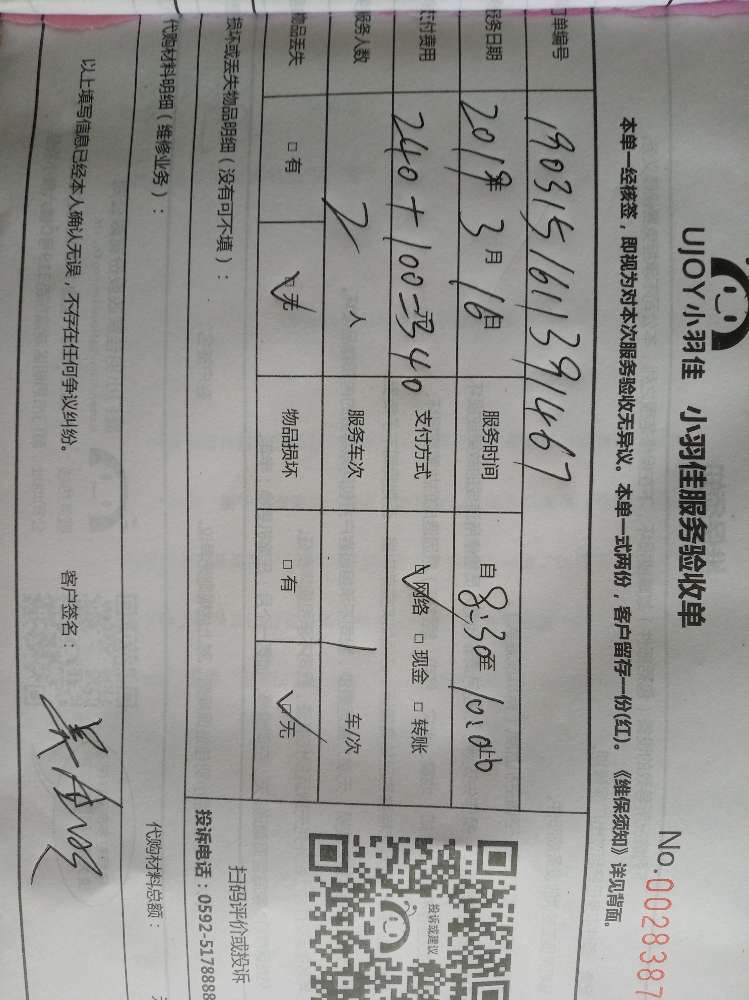 UJOY小羽佳 小羽佳服务验收单
No.0028387
本单一经核签，即视为对本次服务验收无异议。本单一式两份，客户留存一份(红)。《维保须知》详见背面。
订单编号 1903151611391467
服务日期 2019年3月16日 服务时间 自8:30至
应付费用 240+100=340元 支付方式 ☑网络 □现金 □转账
服务人数 2人 服务车次 1车/次
物品丢失 □有 ☑无 物品损坏 □有 ☑无
损坏或丢失物品明细（没有可不填）：
投诉或建议
扫码评价或投诉
投诉电话：0592-5178888
代购材料明细（维修业务）：
代购材料总额：
以上填写信息已经本人确认无误，不存在任何争议纠纷。 客户签名：